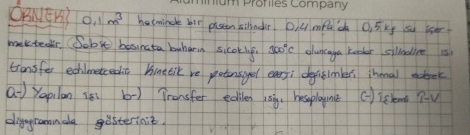 Aluminium Profiles Company
ÖRNEK) 0,1 m³ hacminde bir piston silindir 0,4 mPa'da 0,5 kg su içer-
mektedir. Sabit basınçta buharın sıcaklığı 300°C oluncaya kadar silindire ısı
transfer edilmektedir. Kinetik ve potansiyel enerji değişimleri ihmal ederek
a-) Yapılan işi b-) Transfer edilen ısıyı hesaplayınız c-) işlemi T-V
diyagramında gösteriniz.